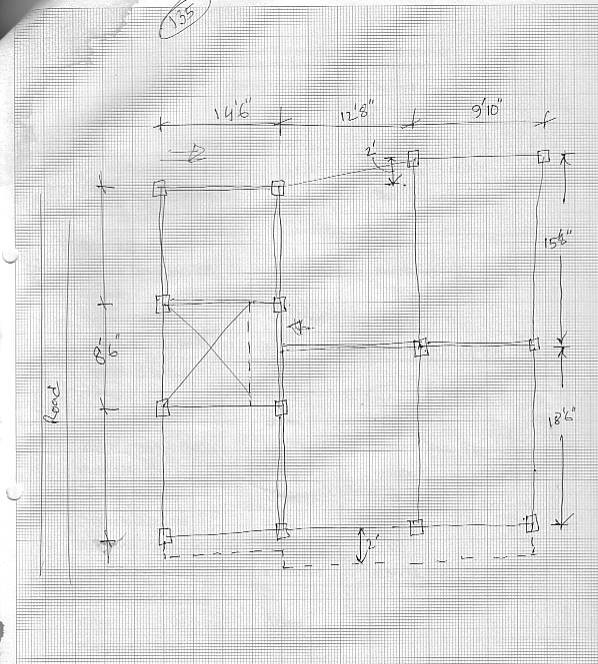 135
14'6" 12'8" 9'10"
2'
15'8"
8'6"
Road
18'6"
2'